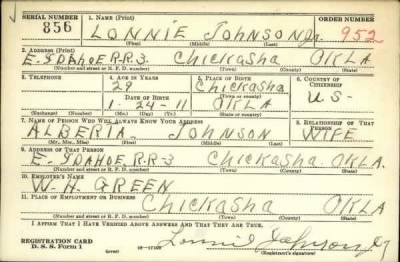 SERIAL NUMBER 1. NAME (Print) ORDER NUMBER
856 LONNIE JOHNSON Jr. 952
(First) (Middle) (Last)
2. ADDRESS (Print)
E. IDAHOE R-R-3. CHICKASHA OKLA
(Number and street or R. F. D. number) (Town) (County) (State)
3. TELEPHONE 4. AGE IN YEARS 5. PLACE OF BIRTH 6. COUNTRY OF CITIZENSHIP
29 CHICKASHA
DATE OF BIRTH (Town or county)
1-24-11 OKLA U.S-
(Exchange) (No.) (Mo.) (Day) (Yr.) (State or country)
7. NAME OF PERSON WHO WILL ALWAYS KNOW YOUR ADDRESS 8. RELATIONSHIP OF THAT PERSON
ALBERTA JOHNSON WIFE
(Mr., Mrs., Miss) (First) (Middle) (Last)
9. ADDRESS OF THAT PERSON
E. IDAHOE, R.R-3 CHICKASHA. OKLA.
(Number and street or R. F. D. number) (Town) (County) (State)
10. EMPLOYER'S NAME
W. H. GREEN
11. PLACE OF EMPLOYMENT OR BUSINESS
CHICKASHA OKLA
(Number and street or R. F. D. number) (Town) (County) (State)
I AFFIRM THAT I HAVE VERIFIED ABOVE ANSWERS AND THAT THEY ARE TRUE.
REGISTRATION CARD
D. S. S. Form 1 Lonnie Johnson Jr
(Registrant's signature)